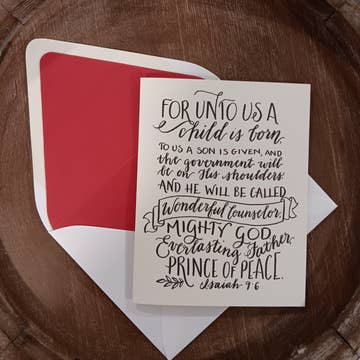 FOR UNTO US A
child is born.
TO US A SON IS GIVEN, AND
the government will
be on His shoulders.
AND HE WILL BE CALLED
Wonderful Counselor,
MIGHTY GOD,
Everlasting Father,
PRINCE OF PEACE.
Isaiah 9:6